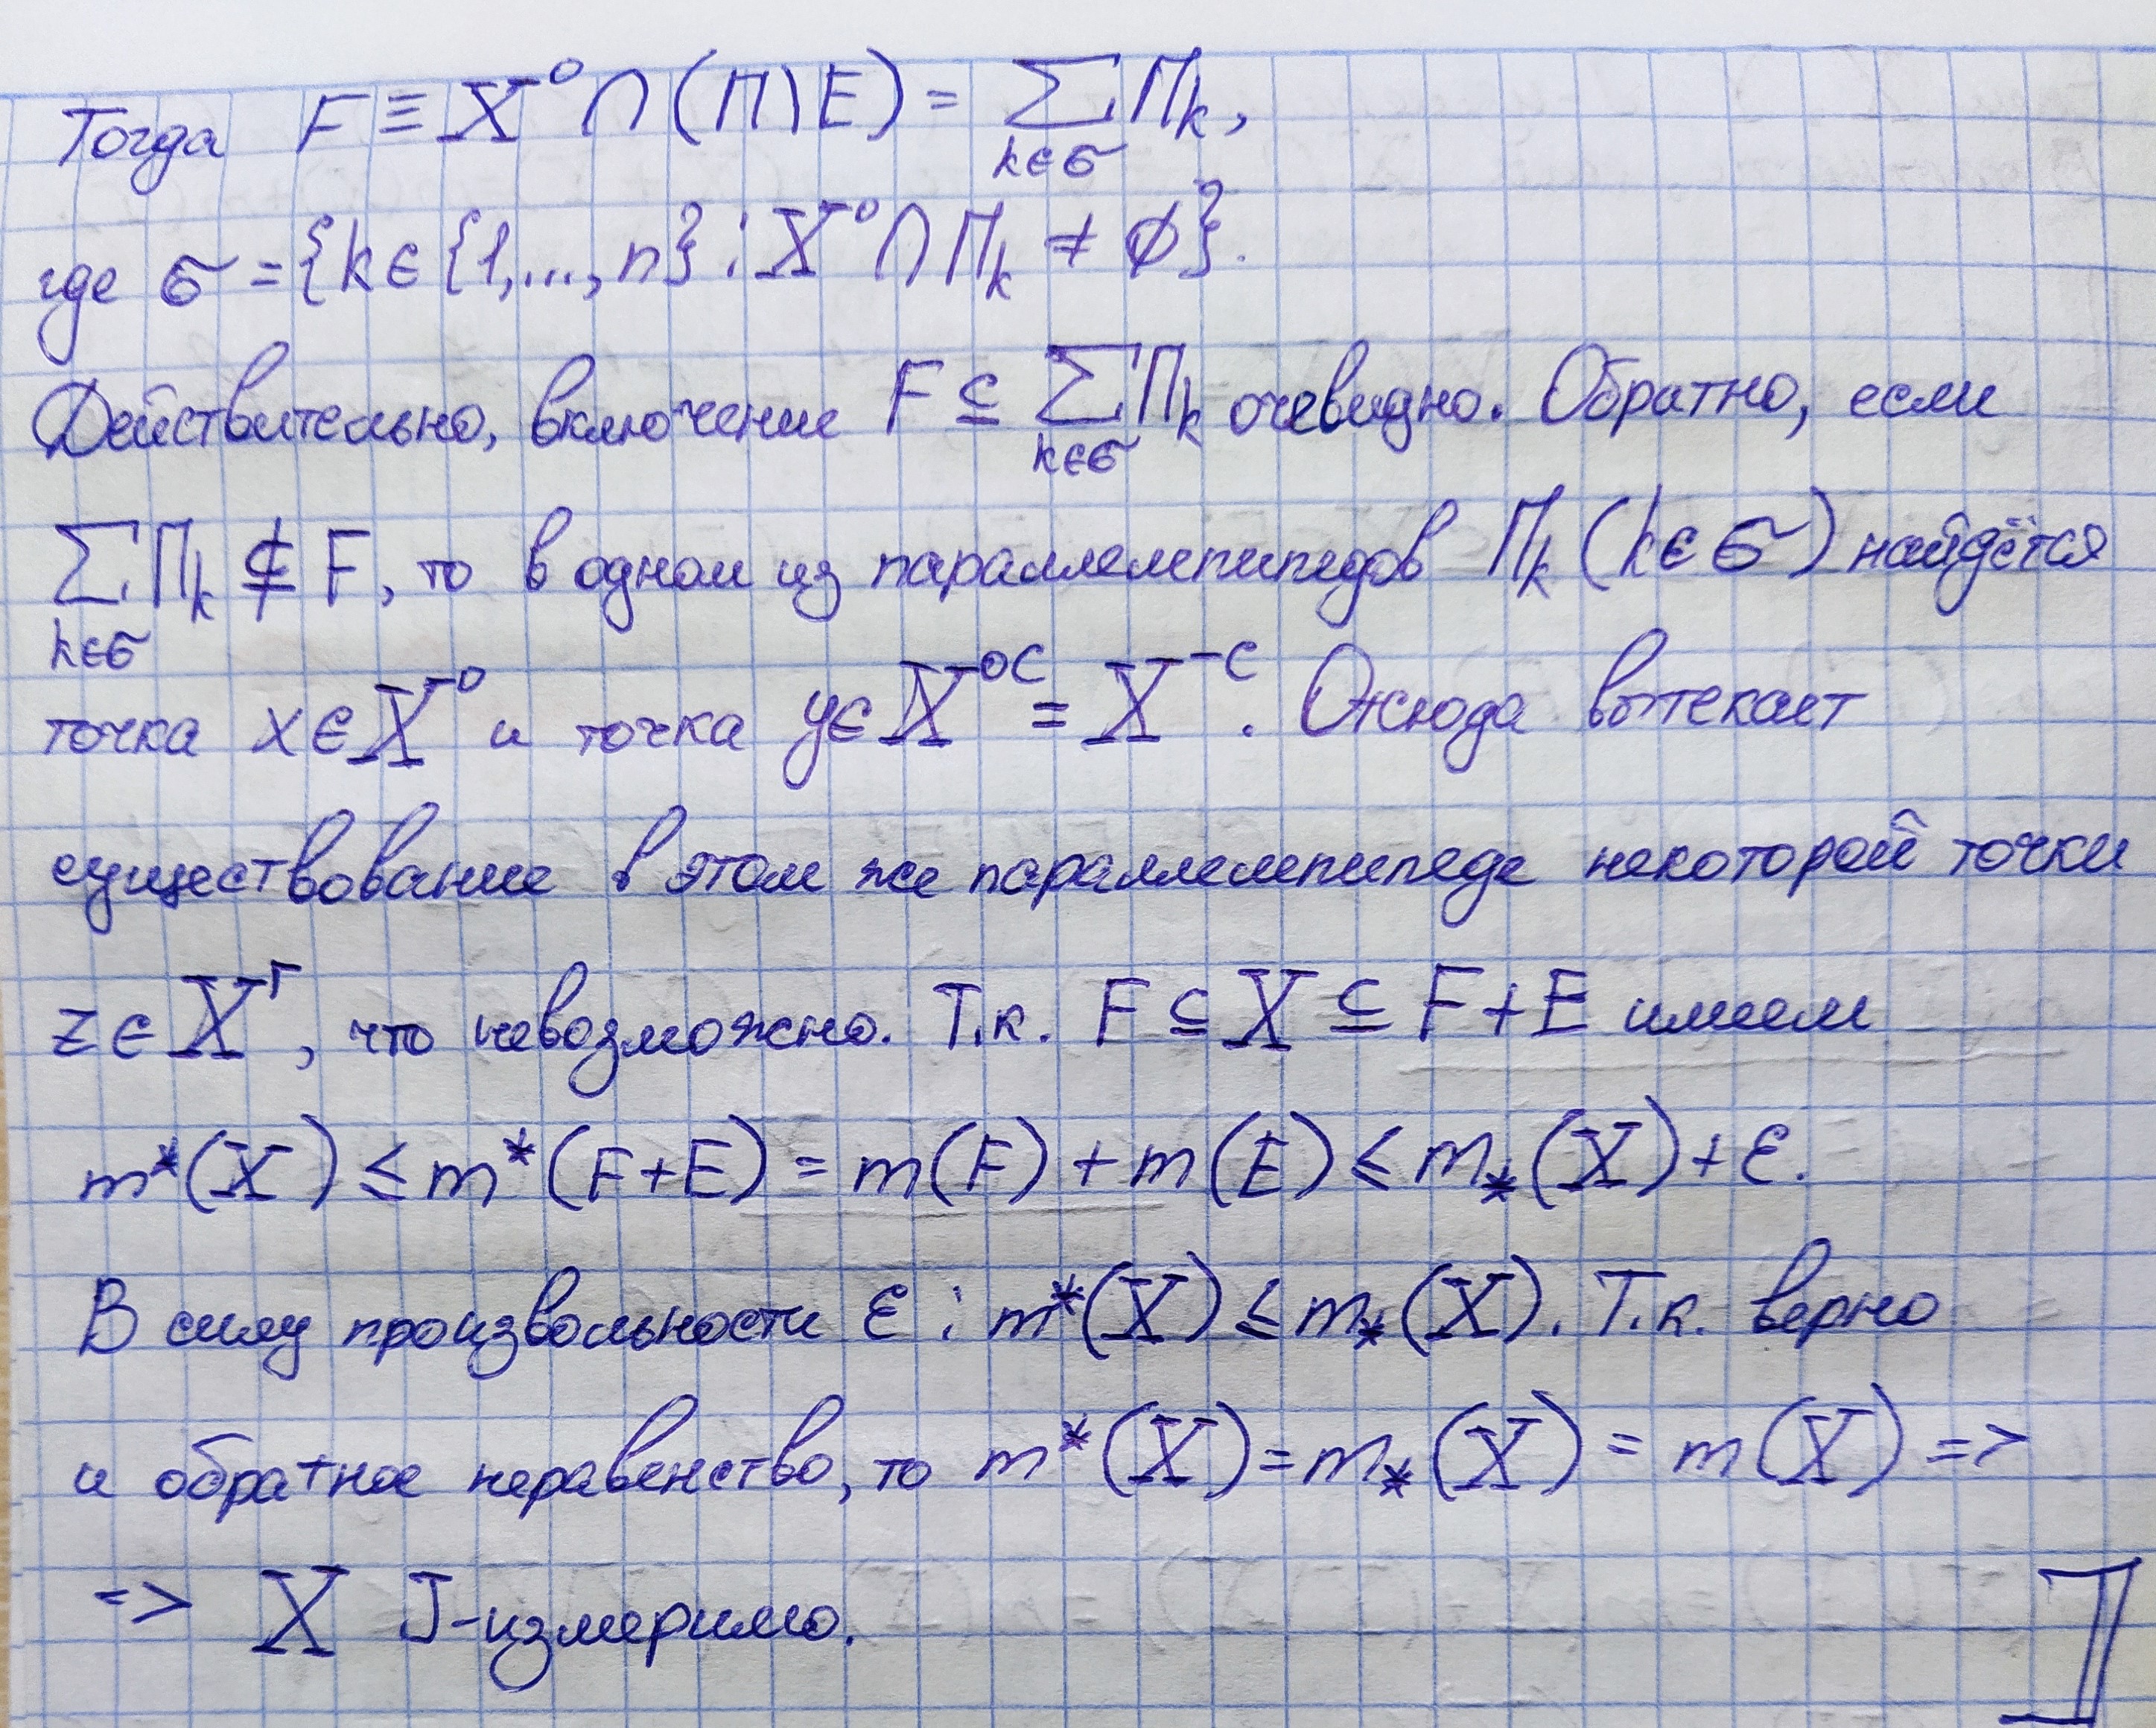 Тогда F ≡ X° ∩ (П \ E) = ∑_{k∈σ} П_k,
где σ = {k ∈ {1,..., n} : X° ∩ П_k ≠ ∅}.
Действительно, включение F ⊆ ∑_{k∈σ} П_k очевидно. Обратно, если
∑_{k∈σ} П_k ⊈ F, то в одном из параллелепипедов П_k (k∈σ) найдётся
точка x ∈ X° и точка y ∈ X^{oc} = X^{-c}. Отсюда вытекает
существование в этом же параллелепипеде некоторой точки
z ∈ X^Г, что невозможно. Т.к. F ⊆ X ⊆ F + E имеем
m*(X) ≤ m*(F+E) = m(F) + m(E) ≤ m_*(X) + ε.
В силу произвольности ε : m*(X) ≤ m_*(X). Т.к. верно
и обратное неравенство, то m*(X) = m_*(X) = m(X) =>
=> X J-измеримо. ]